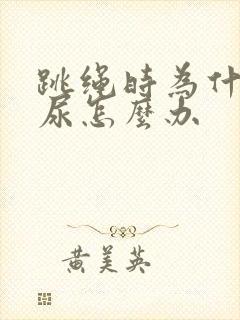 跳绳时為什
尿怎麼办
黄美英